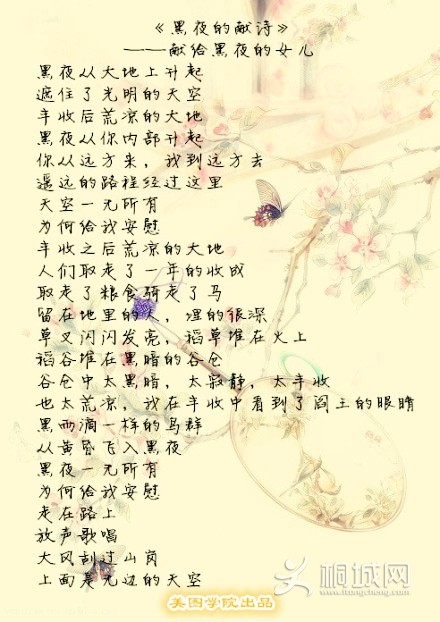 《黑夜的献诗》
——献给黑夜的女儿
黑夜从大地上升起
遮住了光明的天空
丰收后荒凉的大地
黑夜从你内部升起
你从远方来，我到远方去
遥远的路程经过这里
天空一无所有
为何给我安慰
丰收之后荒凉的大地
人们取走了一年的收成
取走了粮食骑走了马
留在地里的人，埋的很深
草叉闪闪发亮，稻草堆在火上
稻谷堆在黑暗的谷仓
谷仓中太黑暗，太寂静，太丰收
也太荒凉，我在丰收中看到了阎王的眼睛
黑雨滴一样的鸟群
从黄昏飞入黑夜
黑夜一无所有
为何给我安慰
走在路上
放声歌唱
大风刮过山岗
上面是无边的天空
美图学院出品
桐城网
itongcheng.com